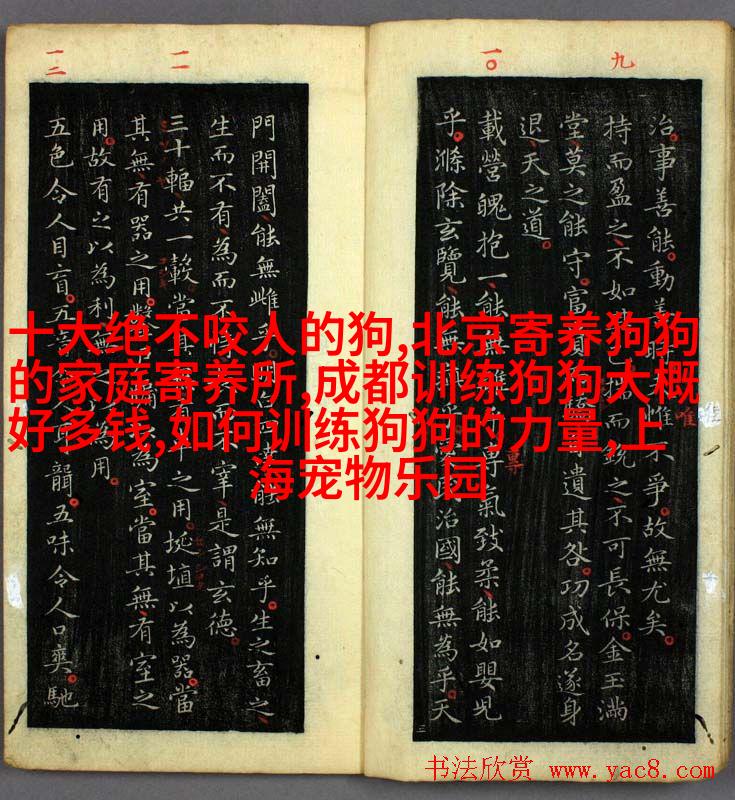 九
一〇
一一
一二
治事善能動善不爭故無尤矣
持而盈之不如其揣而銳之不可長保金玉滿
堂莫之能守富貴遺其咎功成名遂身
退天之道
載營魄抱一能無專氣致柔能如嬰兒
乎滌除玄覽能無民治國能無為乎天
門開闔能無雌乎能無知乎生之畜之
生而不有為而不宰是謂玄德
三十輻共一轂當其無有之用埏埴以為器當
其無有器之用鑿為室當其無有室之
用故有之以為利無之為用
五色令人目盲五聾五味令人口爽馳
唯
十大绝不咬人的狗,北京寄养狗狗
的家庭寄养所,成都训练狗狗大概
好多钱,如何训练狗狗的力量,上
海宠物乐园
书法欣赏 www.yac8.com